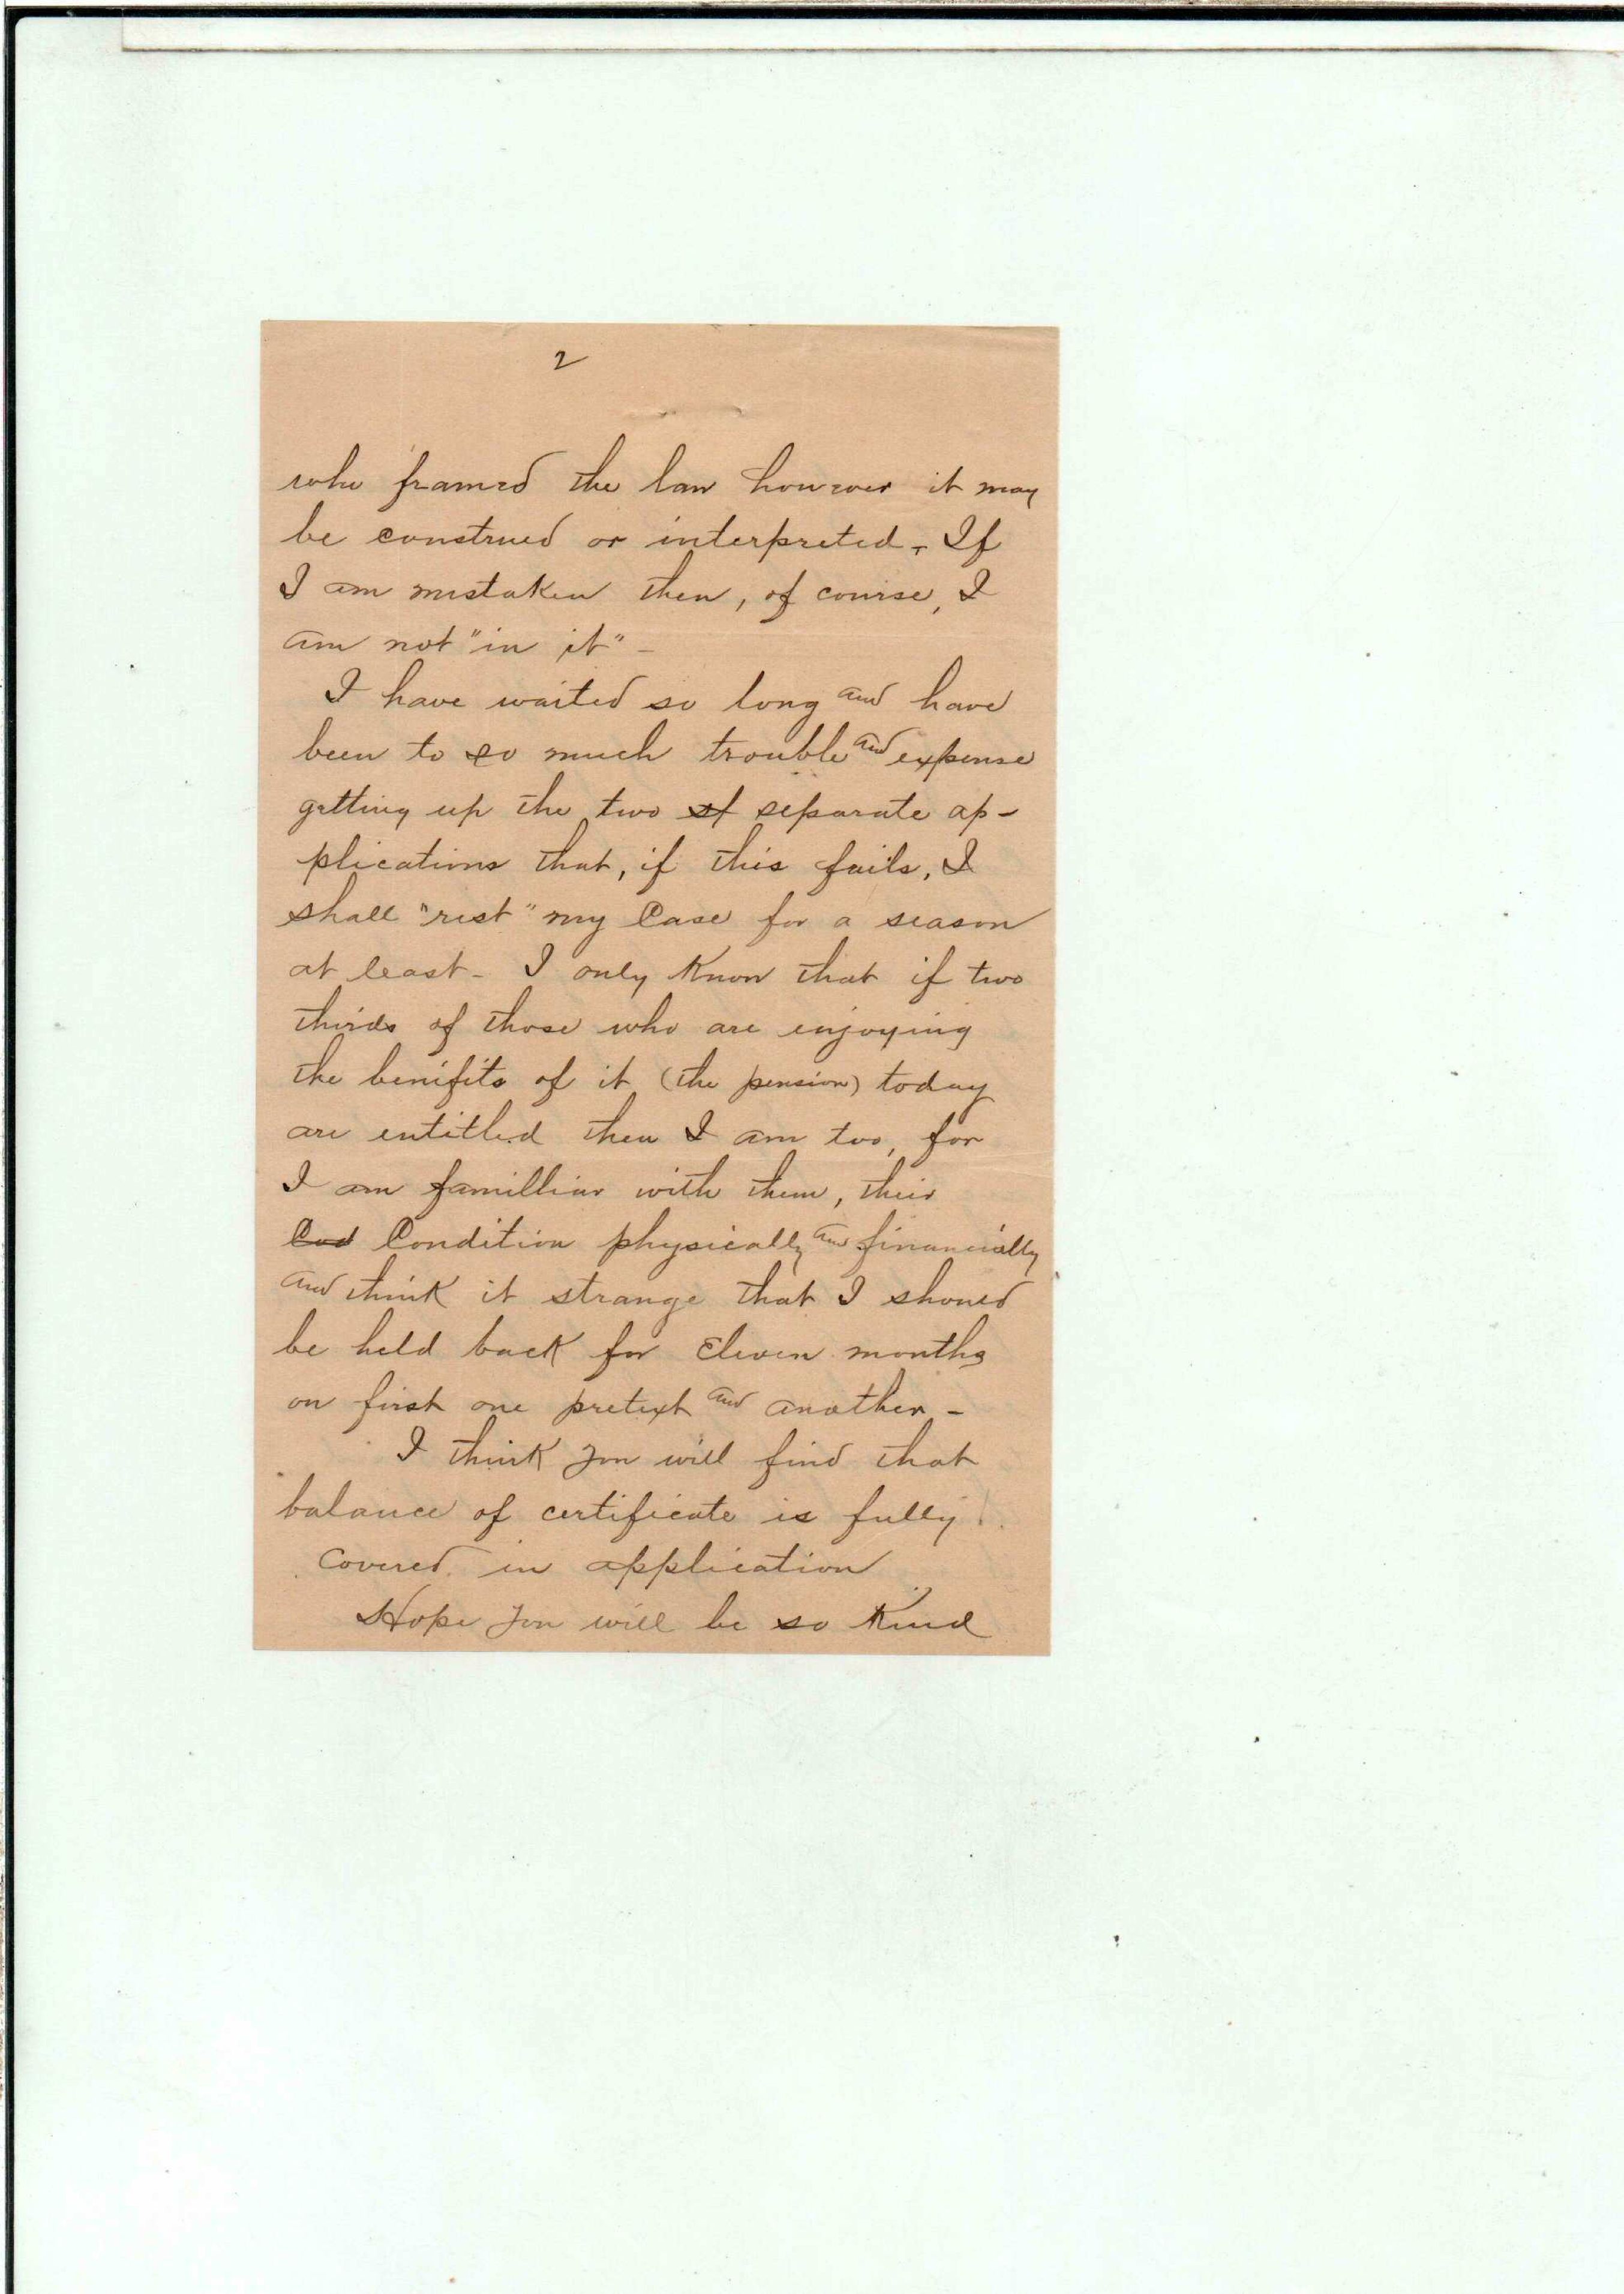 2
who framed the law however it may
be construed or interpreted. If
I am mistaken then, of course, I
am not "in it" -
I have waited so long and have
been to so much trouble and expense
getting up the two st separate ap-
plications that, if this fails, I
shall "rest" my Case for a season
at least - I only Know that if two
thirds of those who are enjoying
the benifits of it (the pension) today
are entitled then I am too, for
I am familliar with them, their
Cod Condition physically and financially
and think it strange that I should
be held back for Eleven months
on first one pretext and another -
I think you will find that
balance of certificate is fully
covered in application
Hope you will be so Kind